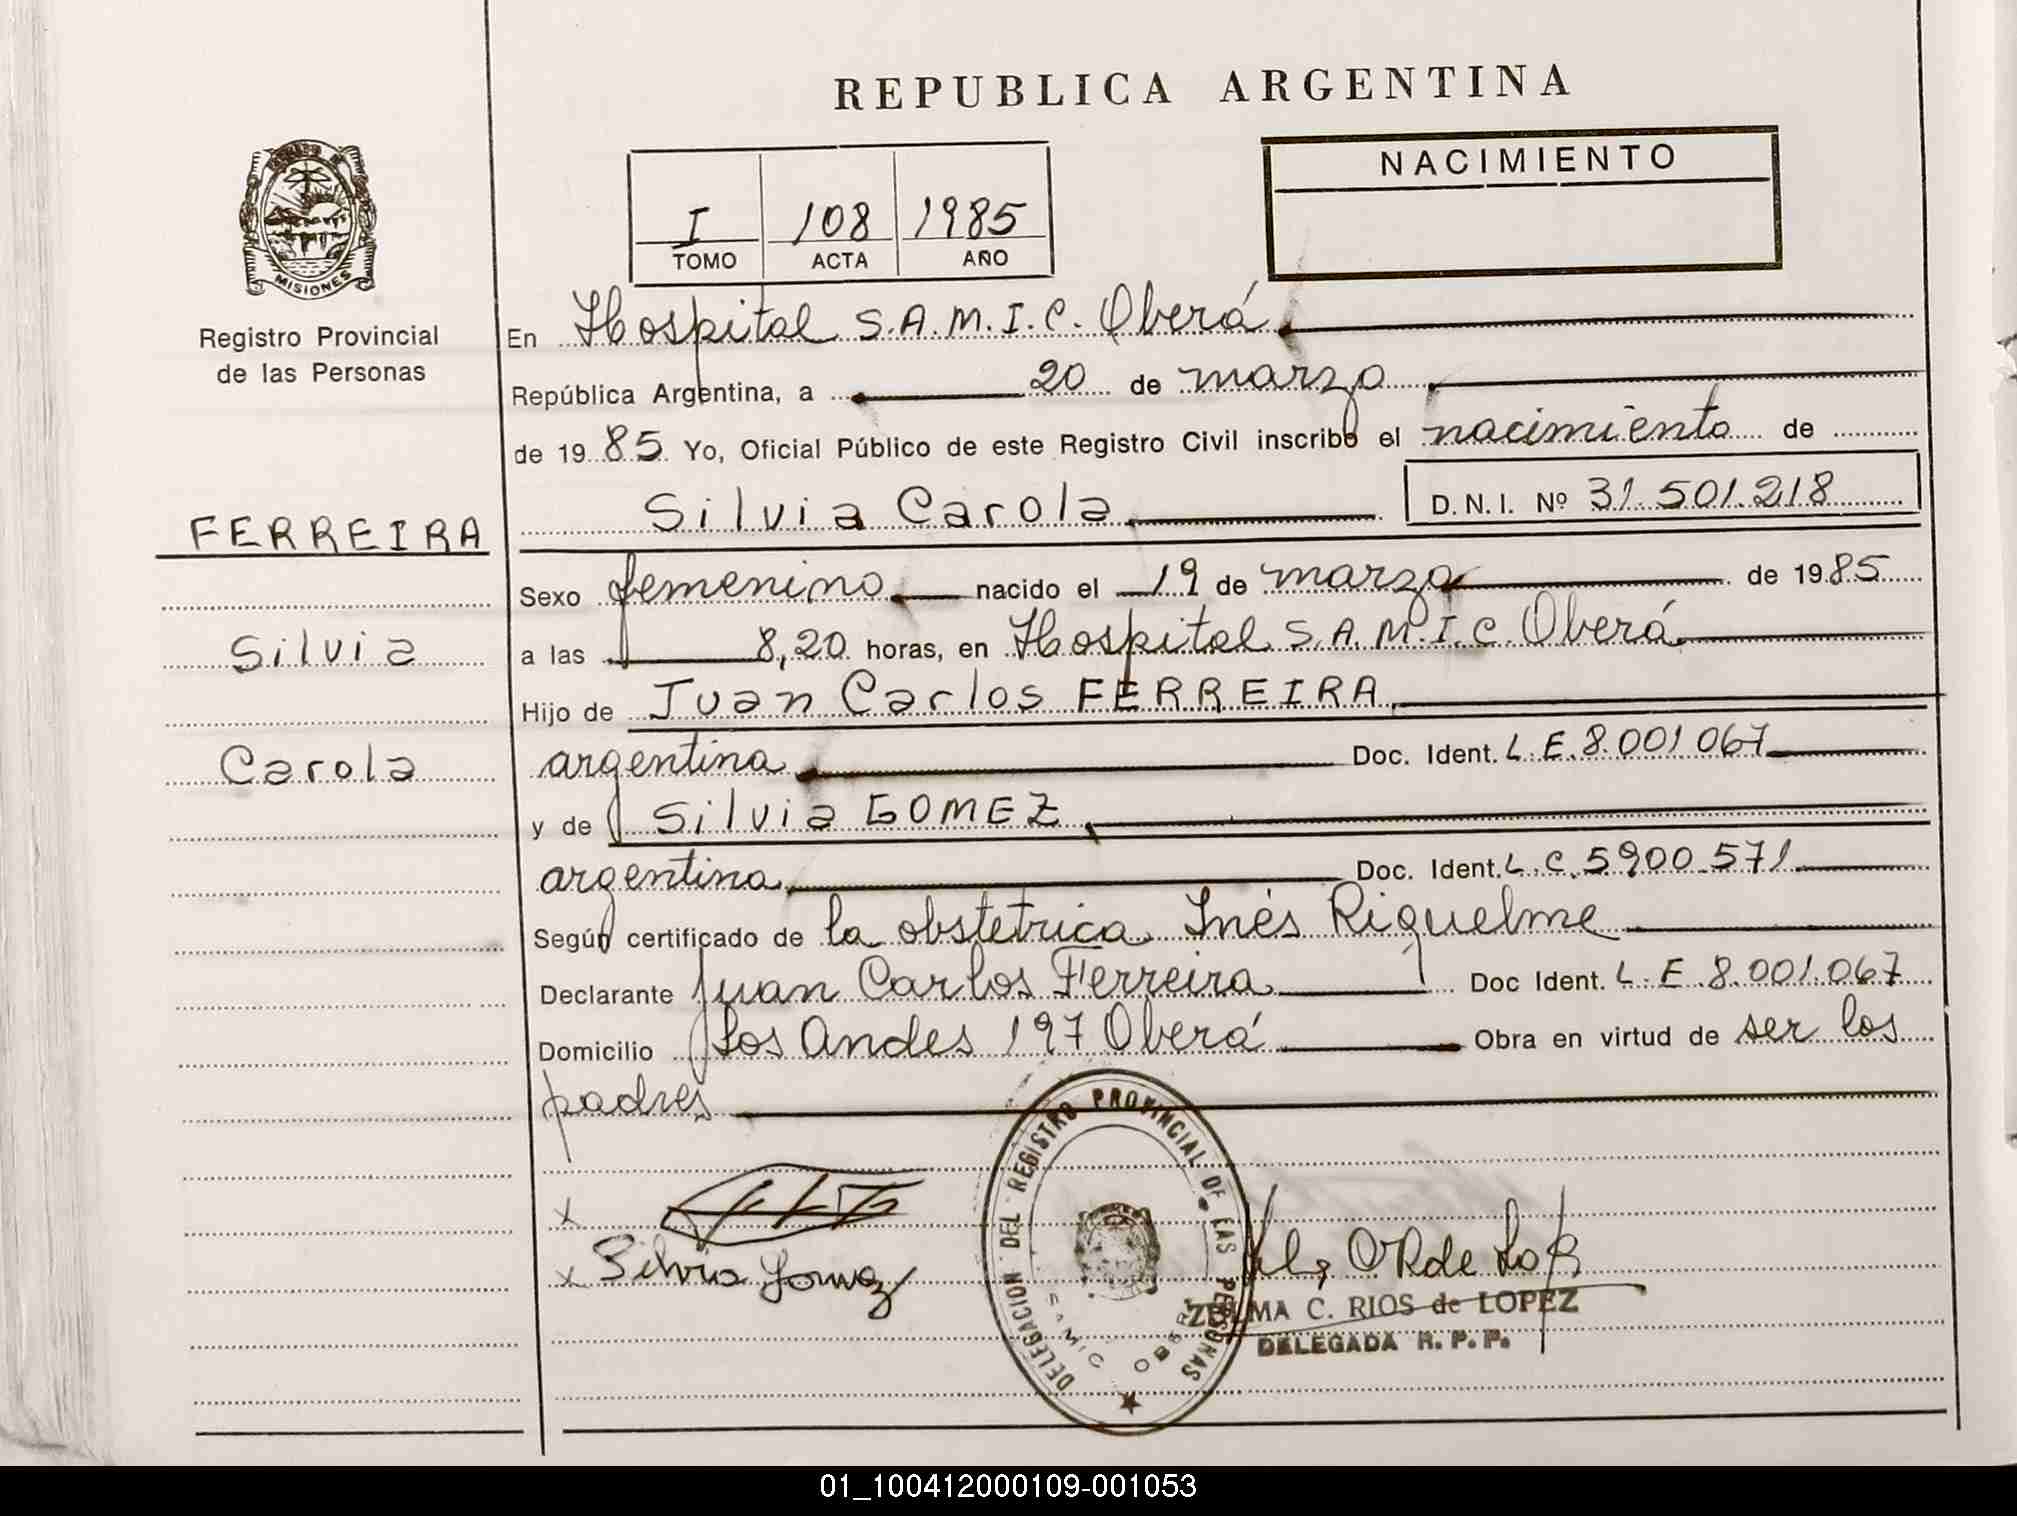 REPUBLICA ARGENTINA
NACIMIENTO
I 108 1985
TOMO ACTA AÑO
MISIONES
Registro Provincial
de las Personas
FERREIRA
Silvia
Carola
En Hospital S.A.M.I.C. Oberá
República Argentina, a 20 de marzo
de 1985 Yo, Oficial Público de este Registro Civil inscribo el nacimiento de
Silvia Carola D.N.I. Nº 31.501.218
Sexo femenino nacido el 19 de marzo de 1985
a las 8,20 horas, en Hospital S.A.M.I.C. Oberá
Hijo de Juan Carlos FERREIRA
argentina Doc. Ident. L.E. 8.001.067
y de Silvia GOMEZ
argentina Doc. Ident. L.C. 5900.571
Según certificado de la obstetrica Inés Riquelme
Declarante Juan Carlos Ferreira Doc Ident. L.E. 8.001.067
Domicilio Los Andes 197 Oberá Obra en virtud de ser los
padres
x
x Silvia Gomez
DELEGACION DEL REGISTRO PROVINCIAL DE LAS PERSONAS
SAMIC OBERA
ZELMA C. RIOS de LOPEZ
DELEGADA R. P. P.
01_100412000109-001053